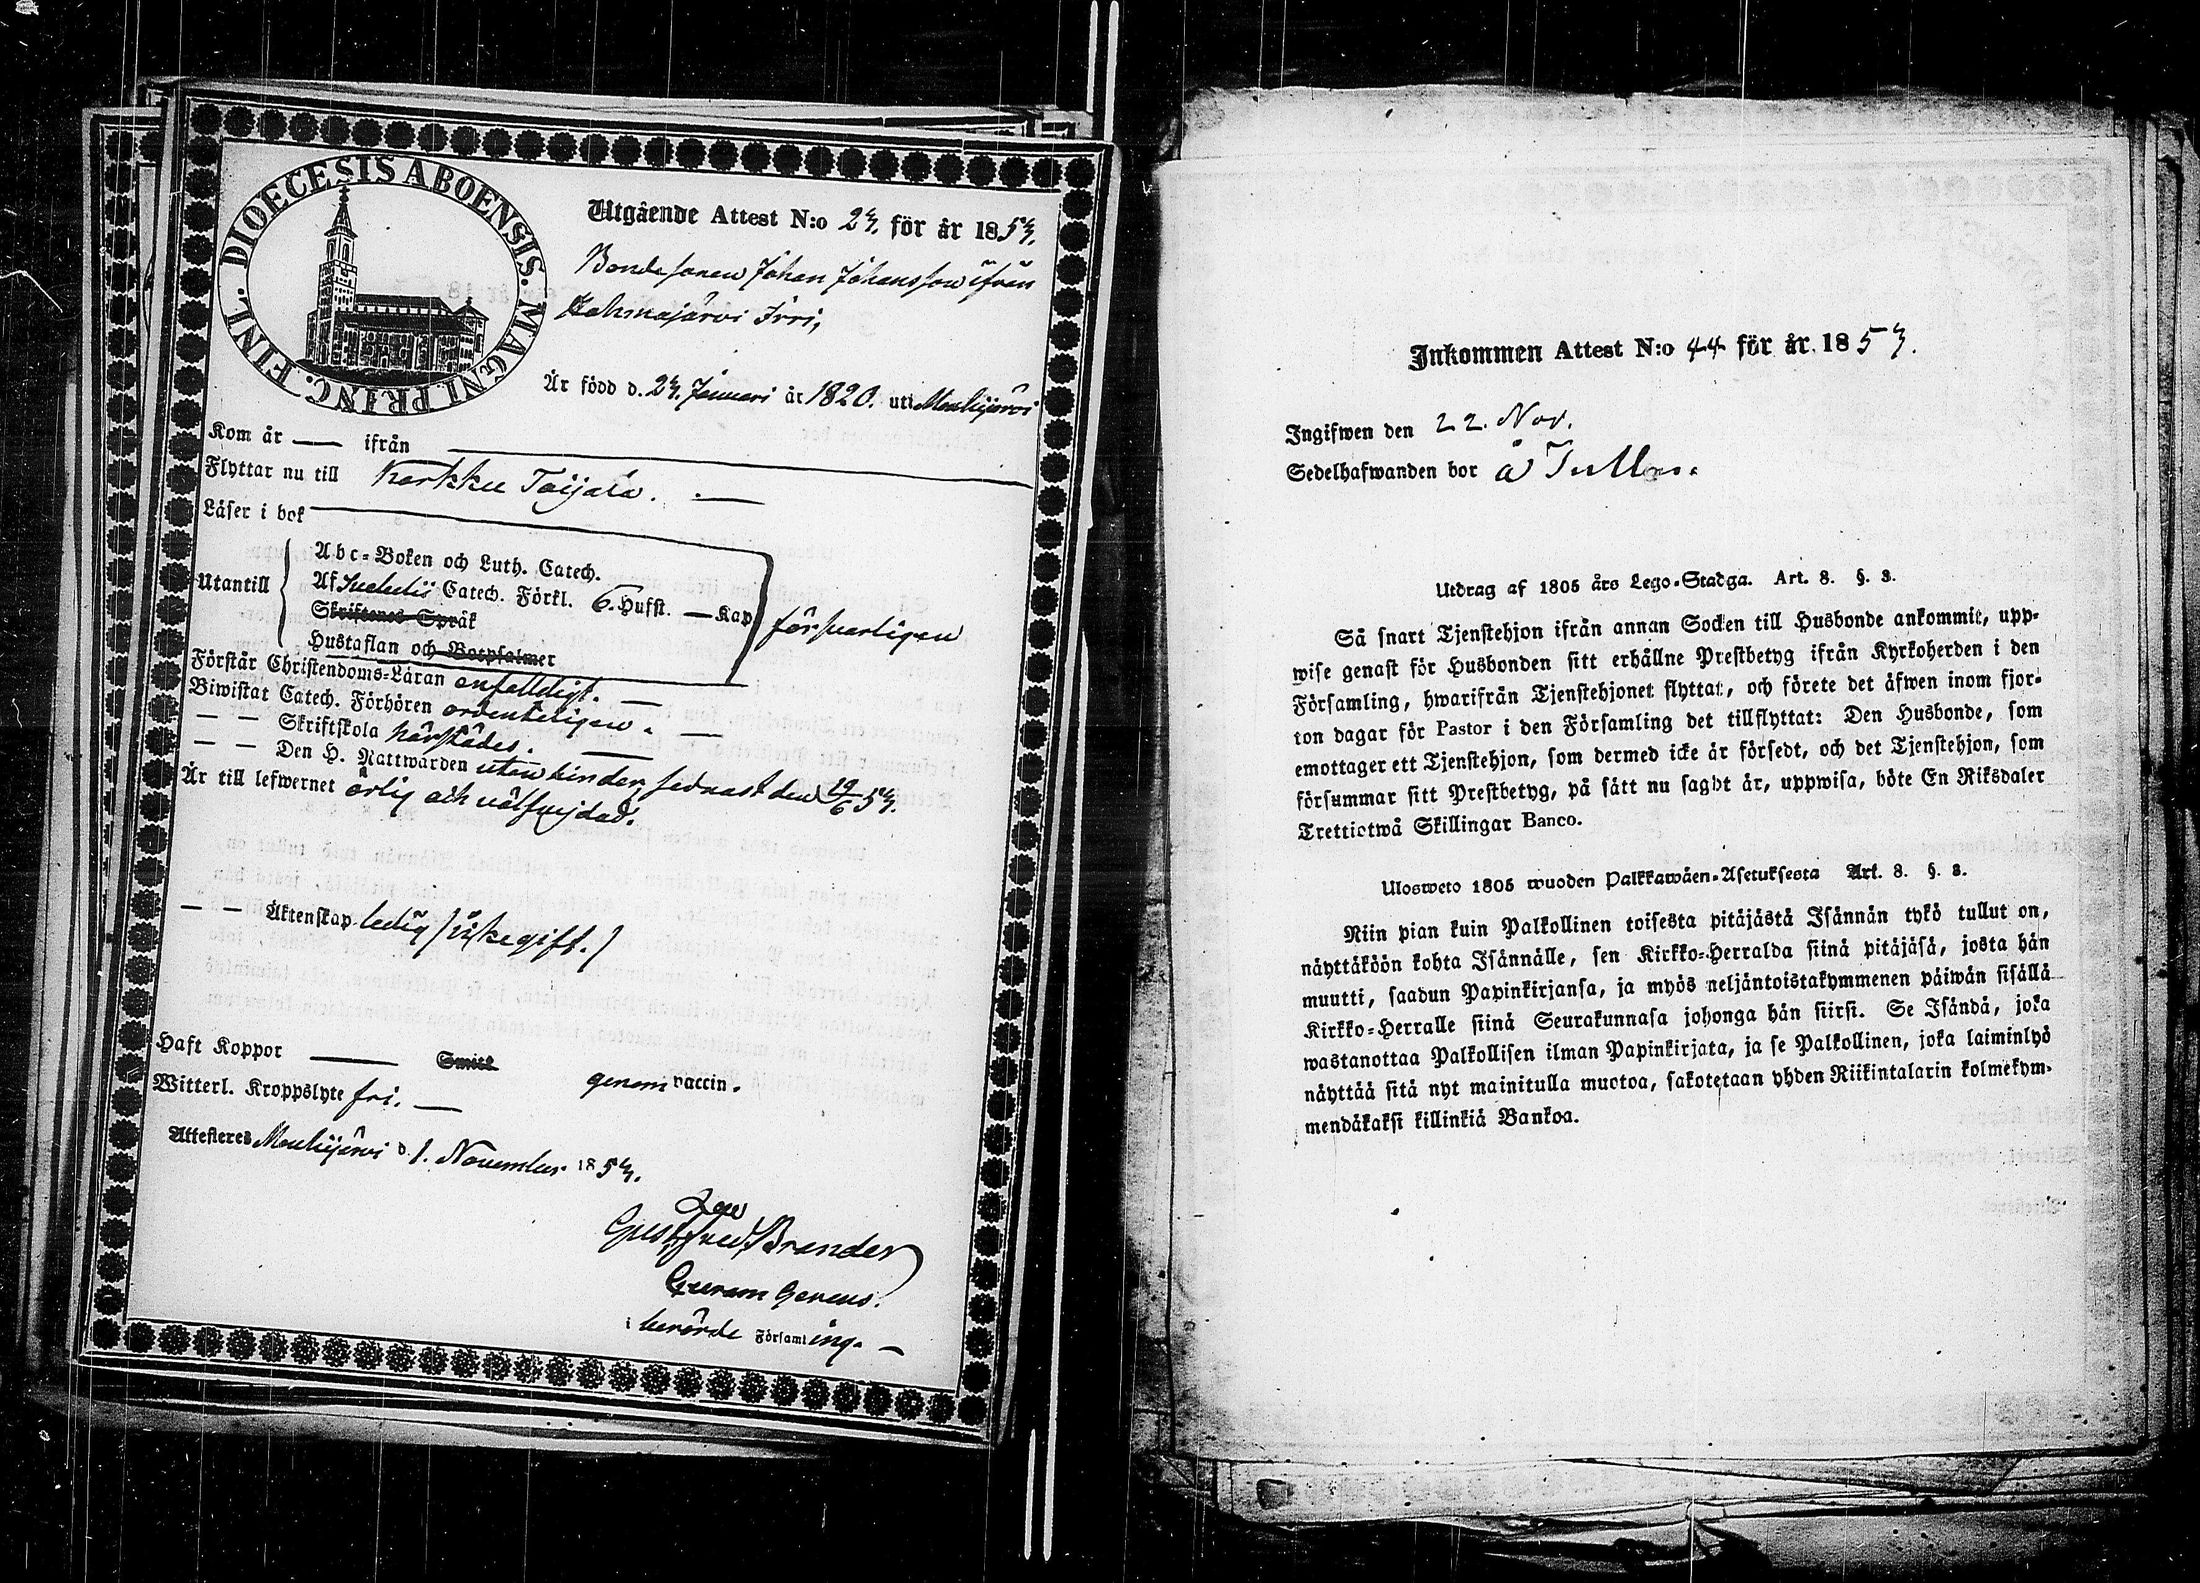 DIOECESIS ABOENSIS. MAGNI. PRINC. FINL.
Utgående Attest N:o 23. för år 1853.
Bondesonen Johan Johansson ifrån
Kahmajärvi Irri,
År född d. 23. Januari år 1820. uti Mouhijärvi
Kom år — ifrån —
Flyttar nu till Karkku Toijala. —
Läser i bok
Utantill
Abc-Boken och Luth. Catech.
Af Svebilii Catech. Förkl. 6. Hufst. — Kap
Skriftenes Språk
Hustaflan och Botpsalmer
försvarligen
Förstår Christendoms-Läran enfalldigt. —
Biwistat Catech. Förhören ordenteligen. —
— — Skriftskola härstädes. —
— — Den H. Nattwarden utan hinder, sednast den 19/6 53.
Är till lefwernet ärlig och välfrejdad.
— — Äktenskap ledig /: oäkegift. /
Haft Koppor — Smitt genom vaccin.
Witterl. Kroppslyte fri. —
Attesteres Mouhijärvi d. 1. November 1853.
Gust. Fred. Brander
Curam Gerens.
i berörde Församling. —
Inkommen Attest N:o 44 för år 1853.
Ingifwen den 22. Nov.
Sedelhafwanden bor å Tulla.
Utdrag af 1805 års Lego-Stadga. Art. 8. §. 3.
Så snart Tjenstehjon ifrån annan Socken till Husbonde ankommit, upp-
wise genast för Husbonden sitt erhållne Prestbetyg ifrån Kyrkoherden i den
Församling, hwarifrån Tjenstehjonet flyttat, och förete det äfwen inom fjor-
ton dagar för Pastor i den Församling det tillflyttat: Den Husbonde, som
emottager ett Tjenstehjon, som dermed icke är försedt, och det Tjenstehjon, som
försummar sitt Prestbetyg, på sätt nu sagdt är, uppwisa, böte En Riksdaler
Trettiotwå Skillingar Banco.
Ulosweto 1805 wuoden Palkkawäen-Asetuksesta Art. 8. §. 3.
Niin pian kuin Palkollinen toisesta pitäjästä Isännän tykö tullut on,
näyttäköön kohta Isännälle, sen Kirkko-Herralda siinä pitäjäsä, josta hän
muutti, saadun Papinkirjansa, ja myös neljäntoistakymmenen päiwän sisällä
Kirkko-Herralle siinä Seurakunnasa johonga hän siirsi. Se Isändä, joka
wastanottaa Palkollisen ilman Papinkirjata, ja se Palkollinen, joka laiminlyö
näyttää sitä nyt mainitulla muotoa, sakotetaan yhden Riikintalarin kolmekym-
mendäkaksi killinkiä Bankoa.